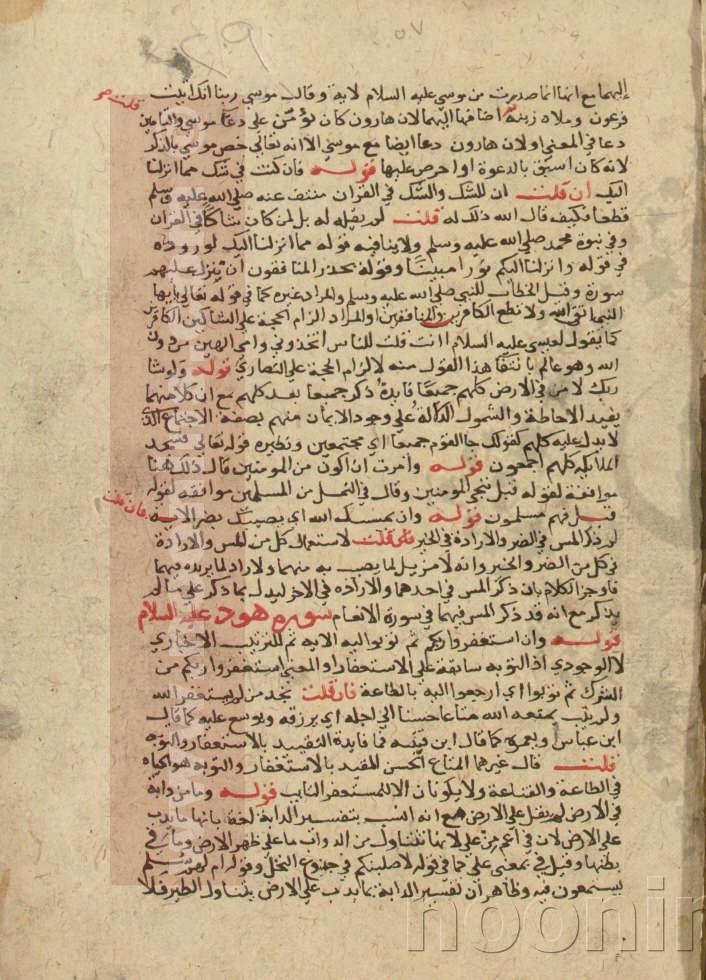 ٥٧
إليهما مع انها انما صدرت من موسي عليه السلام لاية وقال موسي ربنا انك اتيت
قلت صح
فرعون وملاه زينة اضافها اليهما لان هارون كان يؤمن علي دعا موسي والتامين
دعا في المعني اولان هارون دعا ايضا مع موسي الا انه تعالي خص موسي بالذكر
لانه كان اسبق بالدعوة او احرص عليها قوله فان كنت في شك مما انزلنا
اليك ان قلت ان للشك والشك في القران منتف عنه صلي الله عليه وسلم
قطعا فكيف قال الله ذلك له قلت لم يقله له بل لمن كان شاكا في القران
وفي نبوة محمد صلي الله عليه وسلم ولا ينافيه قوله مما انزلنا اليك لوروده
في قوله وانزلنا اليكم نورا مبينا وقوله يحذر المنافقون ان ينزل عليهم
سورة وقيل الخطاب للنبي صلي الله عليه وسلم والمراد غيره كما في قوله تعالي يا ايها
النبي اتق الله ولا تطع الكافرين والمنافقين او المراد الزام الحجة علي الشاكين الكافرين
كما يقول لعيسي عليه السلام اانت قلت للناس اتخذوني وامي الهين من دون
الله وهو عالم بانتفا هذا القول منه لالزام الحجة علي النصاري قوله ولو شا
ربك لامن في الارض كلهم جميعا فايدة ذكر جميعا بعد كلهم مع ان كلا منهما
يفيد الاحاطة والشمول الدلالة علي وجود الايمان منهم بصفة الاجتماع الذي
لا يدل عليه كلهم كقولك جا القوم جميعا اي مجتمعين ونظيره قوله تعالي فسجد
الملايكة كلهم اجمعون قوله وامرت ان اكون من المومنين قال ذلك هنا
موافقة لقوله قبل ننجي المومنين وقال في النمل من المسلمين موافقة لقوله
فان قلت
قبل فهم مسلمون قوله وان يمسسك الله اي يصبك بضر الاية
لم ذكر المس في الضر والارادة في الخير قلت لاستعمال كل من المس والارادة
في كل من الضر والخير وانه لا مزيل لما يصيب به منهما ولا راد لما يريده فيهما
فاوجز الكلام بان ذكر المس في احدهما والاراده في الاخر ليدل بما ذكر علي ما لم
يذكر مع انه قد ذكر المس فيهما في سورة الانعام سورة هود عليه السلام
قوله وان استغفروا ربكم ثم توبوا اليه الاية ثم للترتيب الاخباري
لا الوجودي اذ التوبه سابقة علي الاستغفار او المعني استغفروا ربكم من
الشرك ثم توبوا اي ارجعوا اليه بالطاعة فان قلت نجد من لم يستغفر الله
ولم يتب يمتعه الله متاعا حسنا الي اجله اي يرزقه ويوسع عليه كما قال
ابن عباس ويعمره كما قال ابن قتيبه فما فايدة التقييد بالاستغفار والتوبه
قلت قال غيرهما المتاع الحسن المقيد بالاستغفار والتوبه هو الحياة
في الطاعة والقناعة ولا يكونان الا للمستغفر التايب قوله وما من دابة
في الارض لم يقل علي الارض مع انه انسب بتفسير الدابة لغة بانها ما يدب
علي الارض لان في اعم من علي لانها تتناول من الدواب ما علي ظهر الارض وما في
بطنها وقيل في بمعني علي كما في قوله لاصلبنكم في جذوع النخل وقوله ام لهم سلم
يستمعون فيه وظاهر ان تفسير الدابة بما يدب علي الارض يتناول الطير فلا
noonin